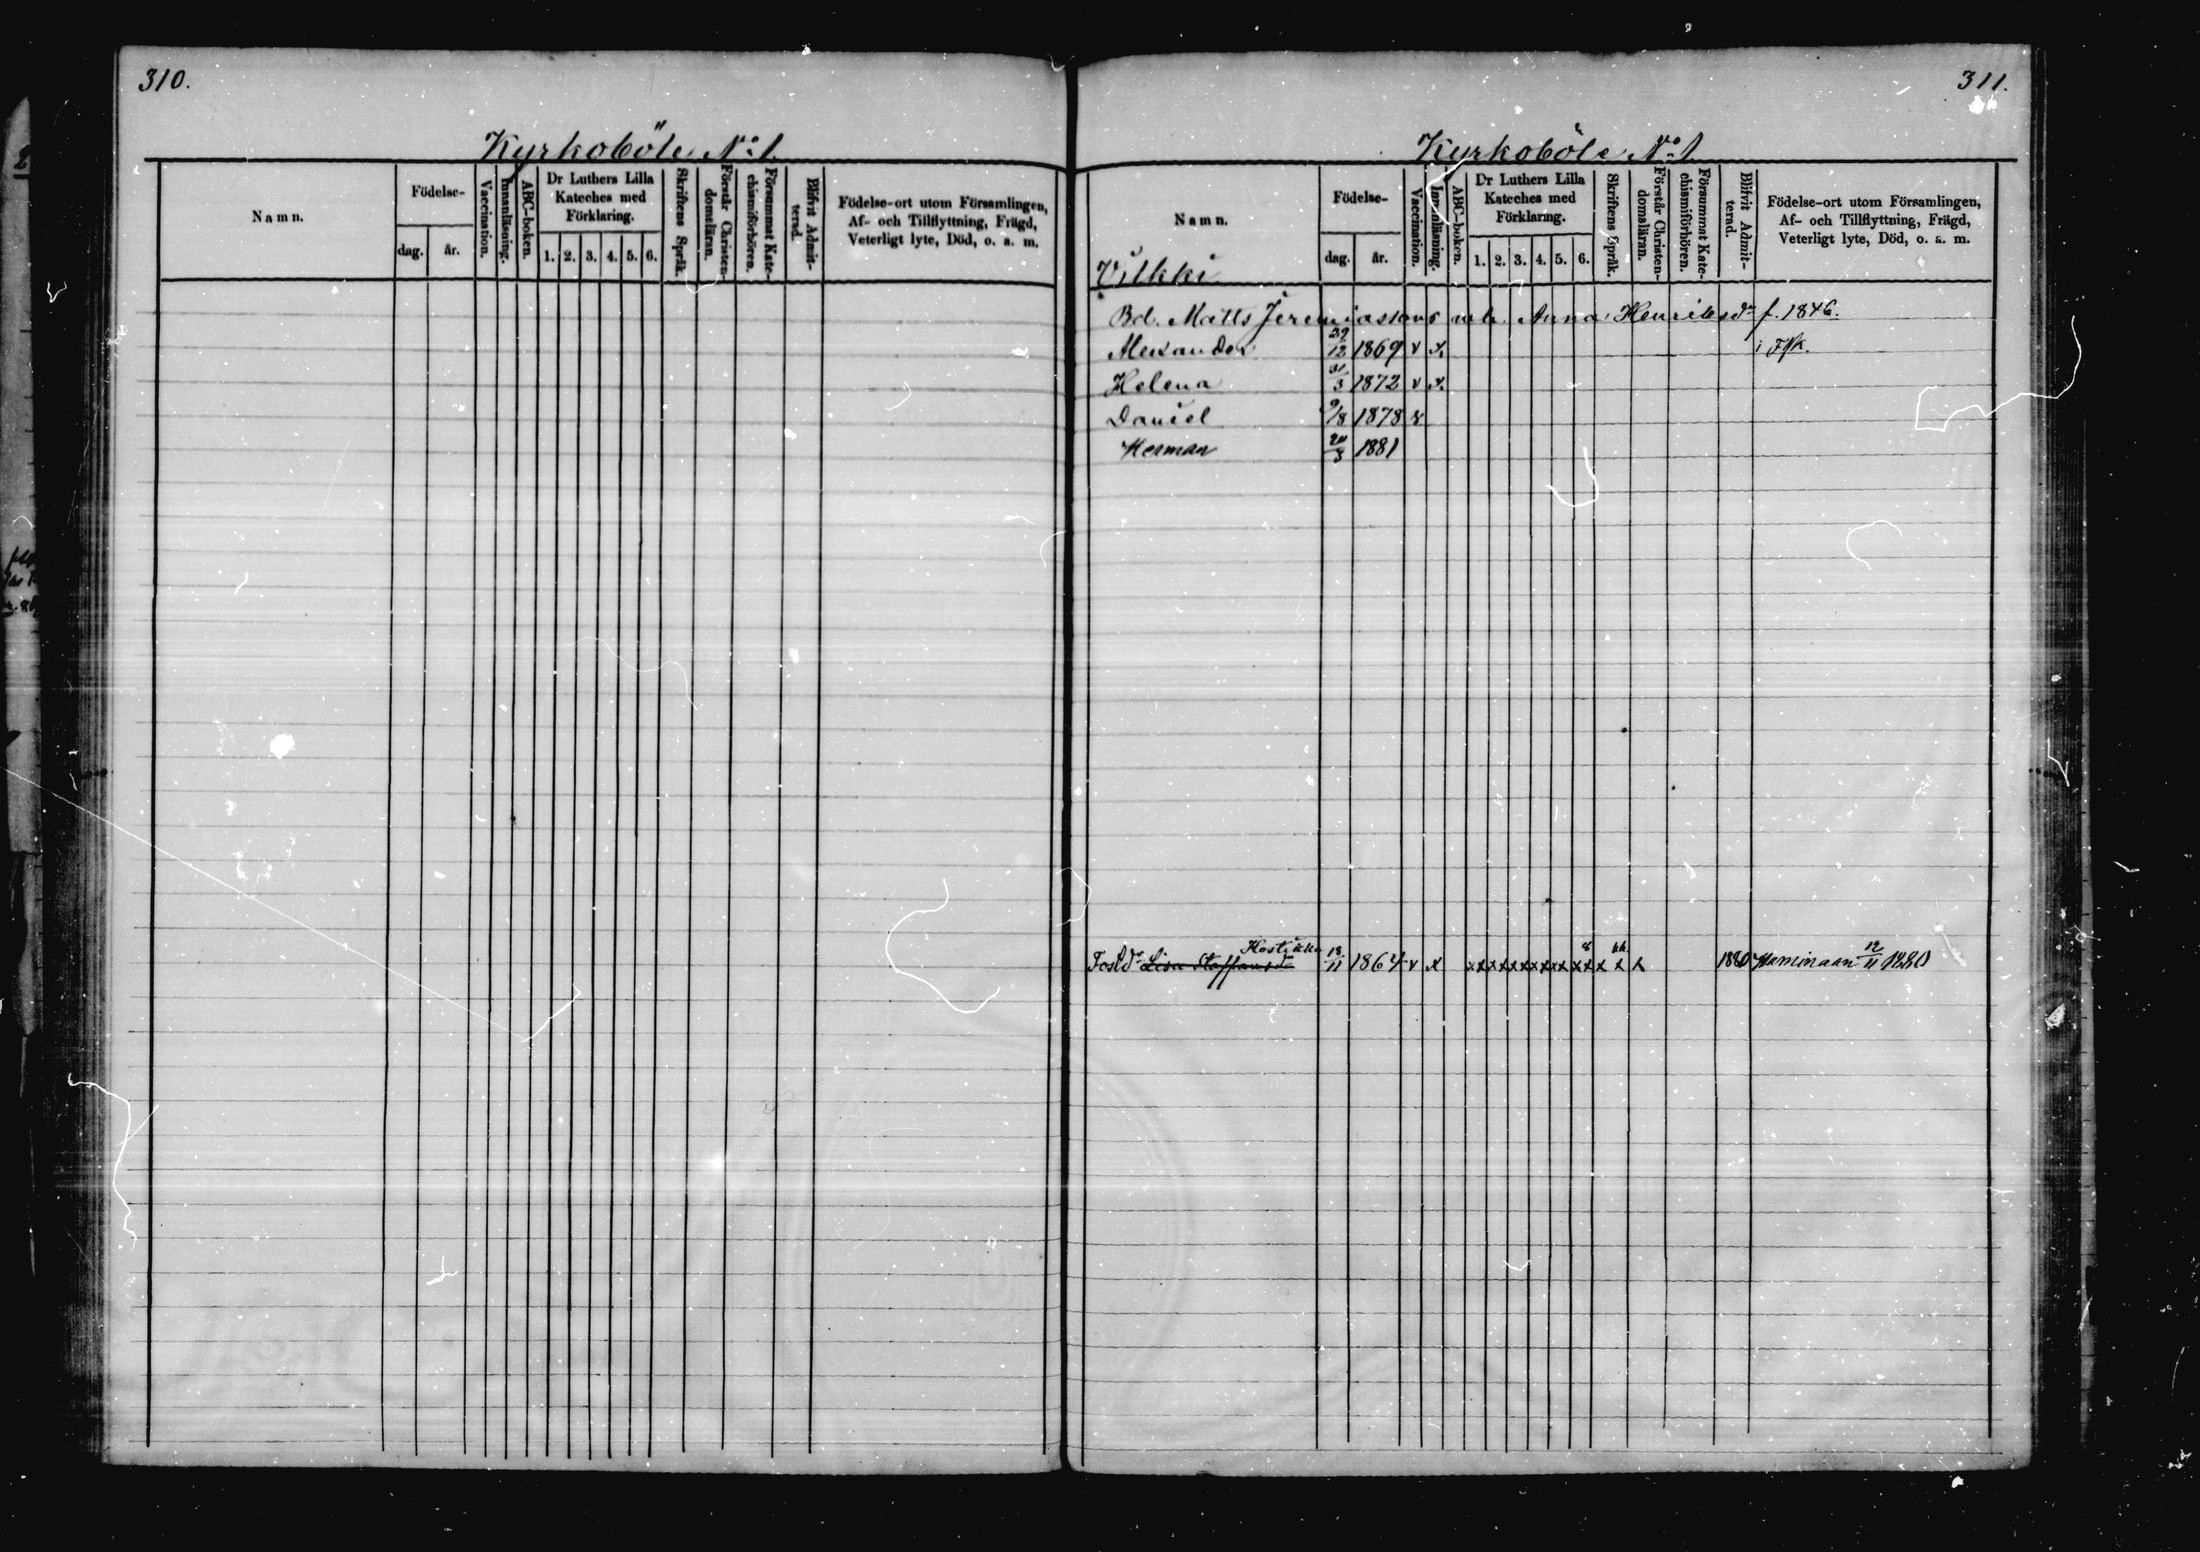 310.
Kyrkoböle No 1.
Namn.
Födelse-
dag.
år.
Vaccination.
Innanläsning.
ABC-boken.
Dr Luthers Lilla
Kateches med
Förklaring.
1. 2. 3. 4. 5. 6.
Skriftens Språk.
Förstår Christen-
domsläran.
Försummat Kate-
chismiförhören.
Blifvit Admit-
terad.
Födelse-ort utom Församlingen,
Af- och Tillflyttning, Frägd,
Veterligt lyte, Död, o. a. m.
311.
Kyrkoböle No 1
Namn.
Födelse-
dag.
år.
Vaccination.
Innanläsning.
ABC-boken.
Dr Luthers Lilla
Kateches med
Förklaring.
1. 2. 3. 4. 5. 6.
Skriftens Språk.
Förstår Christen-
domsläran.
Försummat Kate-
chismiförhören.
Blifvit Admit-
terad.
Födelse-ort utom Församlingen,
Af- och Tillflyttning, Frägd,
Veterligt lyte, Död, o. a. m.
Vilkki
Bd. Matts Jeremiassons Anna Henriksdr f. 1846.
Alexander 29/12 1869 v x
Helena 31/3 1872 v x
Daniel 9/8 1878 v
Herman 20/3 1881
Lisa Staffansdr 18/11 1864 v x x x x x x x x x x x x x x x x x 1880 Haminaan 12/11 1880